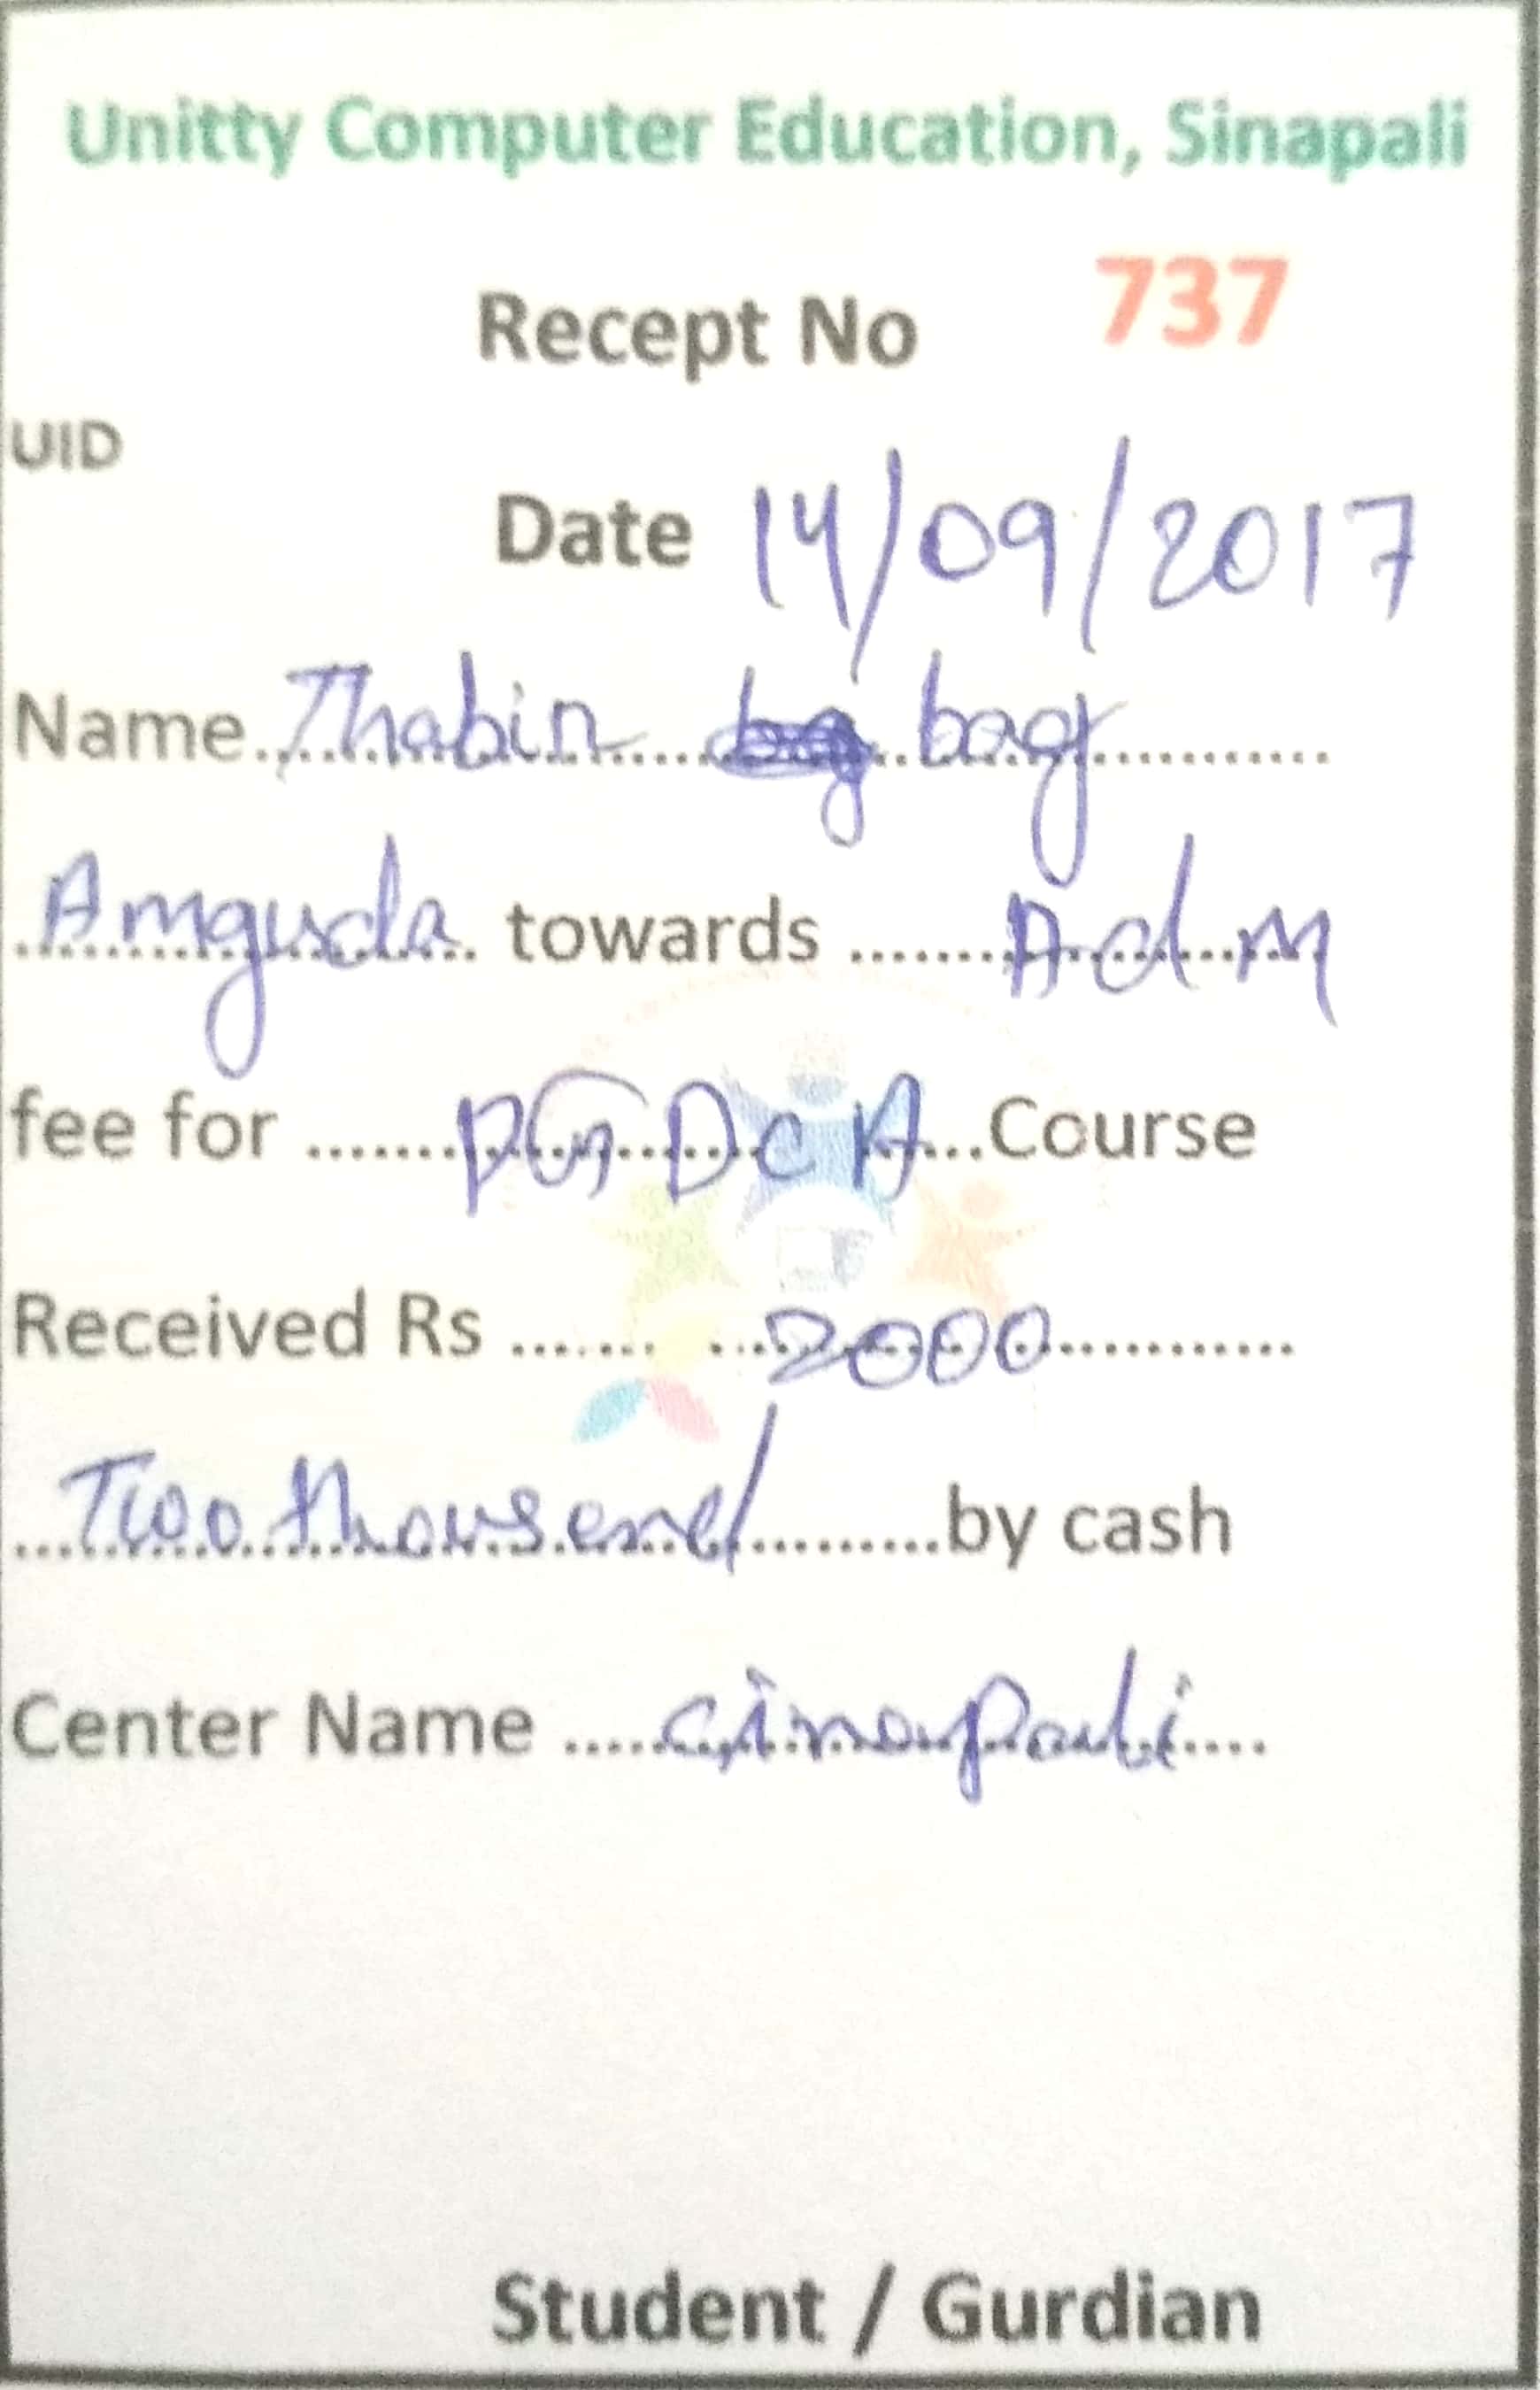 Unitty Computer Education, Sinapali
Recept No 737
UID
Date 14/09/2017
Name Thabin bag
Amguda towards Adm
fee for PGDCA Course
Received Rs 2000
Two thousend by cash
Center Name cinapali
Student / Gurdian